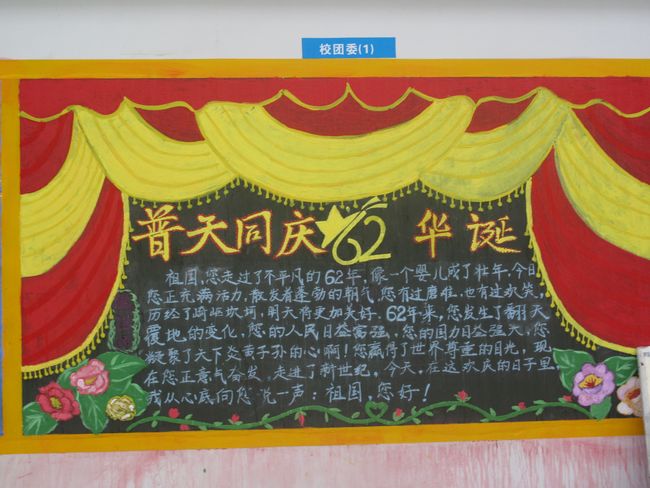 校团委(1)
普天同庆 62 华诞
祖国,您走过了不平凡的62年,像一个婴儿成了壮年,今日
您正充满活力,散发着蓬勃的朝气,您有过磨难,也有过欢笑,
历经了崎岖坎坷,明天将更加美好。62年来,您发生了翻天
覆地的变化,您的人民日益富强,您的国力日益强大,您
凝聚了天下炎黄子孙的心啊!您赢得了世界尊重的目光,现
在您正意气奋发,走进了新世纪。今天,在这欢庆的日子里,
我从心底向您说一声:祖国,您好!